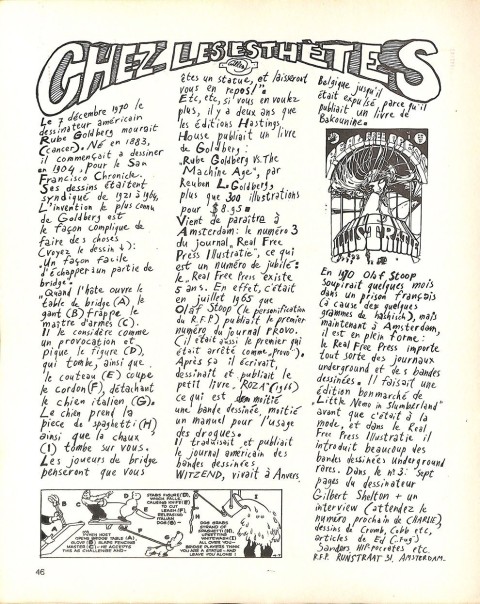 CHEZ LES ESTHÈTES
Le 7 décembre 1970 le
dessinateur américain
Rube Goldberg mourait
(cancer). Né en 1883,
il commençait a dessiner
en 1904, pour le San
Francisco Chronicle.
Ses dessins étaitent
syndiqué de 1921 à 1964.
L'invention le plus connu
de Goldberg est
le façon complique de
faire des choses
(voyez le dessin ↓):
"Un façon facile
d'échapper à un partie de
bridge":
"Quand l'hate ouvre le
table de bridge (A), le
gant (B) frappe le
maître d'armes (C).
Il le considère comme
un provocation et
pique le figure (D),
qui tombe, ainsi que
le couteau (E) coupe
le cordon (F), détachant
le chien italien (G).
Le chien prend la
piece de spaghetti (H)
ainsi que la chaux
(I) tombe sur vous.
Les joueurs de bridge
penseront que vous
êtes un statue, et laisseront
vous en repos!".
Etc, etc, si vous en voulez
plus, il y a deux ans que
les éditions Hastings
House publiait un livre
de Goldberg:
"Rube Goldberg VS. The
Machine Age", par
Reuben L. Goldberg,
plus que 300 illustrations
pour $8.95.
Vient de paraître à
Amsterdam: le numéro 3
du journal "Real Free
Press Illustratie", ce qui
est un numéro de jubilé:
le "Real Free Press" existe
5 ans. En effet, c'était
en juillet 1965 que
Olaf Stoop (le personification
du R.F.P.) publiait le premier
numéro du journal PROVO.
(il était aussi le premier qui
était arrêté comme "Provo").
Après ça il écrivait,
dessinait et publiait le
petit livre "ROZA" (1966)
ce qui est moitié
une bande dessinée, moitié
un manuel pour l'usage
des drogues.
Il traduisait et publiait
le journal américain des
bandes dessinées
WITZEND, vivait à Anvers,
Belgique jusqu'il
était expulsé, parce qu'il
publiait un livre de
Bakounine.
REAL FREE PRESS
ILLUSTRATIE
En 1970 Olaf Stoop
soupirait quelques mois
dans un prison français
(à cause des quelques
grammes de hashisch), mais
maintenant à Amsterdam,
il est en plein forme:
le Real Free Press importe
tout sorte des journaux
underground et des bandes
dessinées. Il faisait une
édition bonmarché de
"Little Nemo in Slumberland"
avant que c'était à la
mode, et dans le Real
Free Press Illustratie il
introduit beaucoup des
bandes dessinées underground
rares. Dans le no 3: Sept
pages du dessinateur
Gilbert Shelton + un
interview (attendez le
numéro prochain de CHARLIE),
dessins de Crumb, Cobb etc,
articles de Ed (Fug)
Sanders, HIPocrates etc.
R.F.P. RUNSTRAAT 31, AMSTERDAM.
WHEN HOST
OPENS BRIDGE TABLE (A)
GLOVE (B) SLAPS FENCING
MASTER (C) - HE ACCEPTS
THIS AS CHALLENGE AND-
STABS FIGURE (D),
WHICH FALLS,
CAUSING KNIFE (E)
TO CUT
LEASH (F)
RELEASING
ITALIAN
DOG (G)
DOG GRABS
STRAND OF
SPAGHETTI (H),
UPSETTING
WHITEWASH (I)
ALL OVER YOU-
BRIDGE PLAYERS THINK
YOU ARE A STATUE-AND
LEAVE YOU ALONE!
46